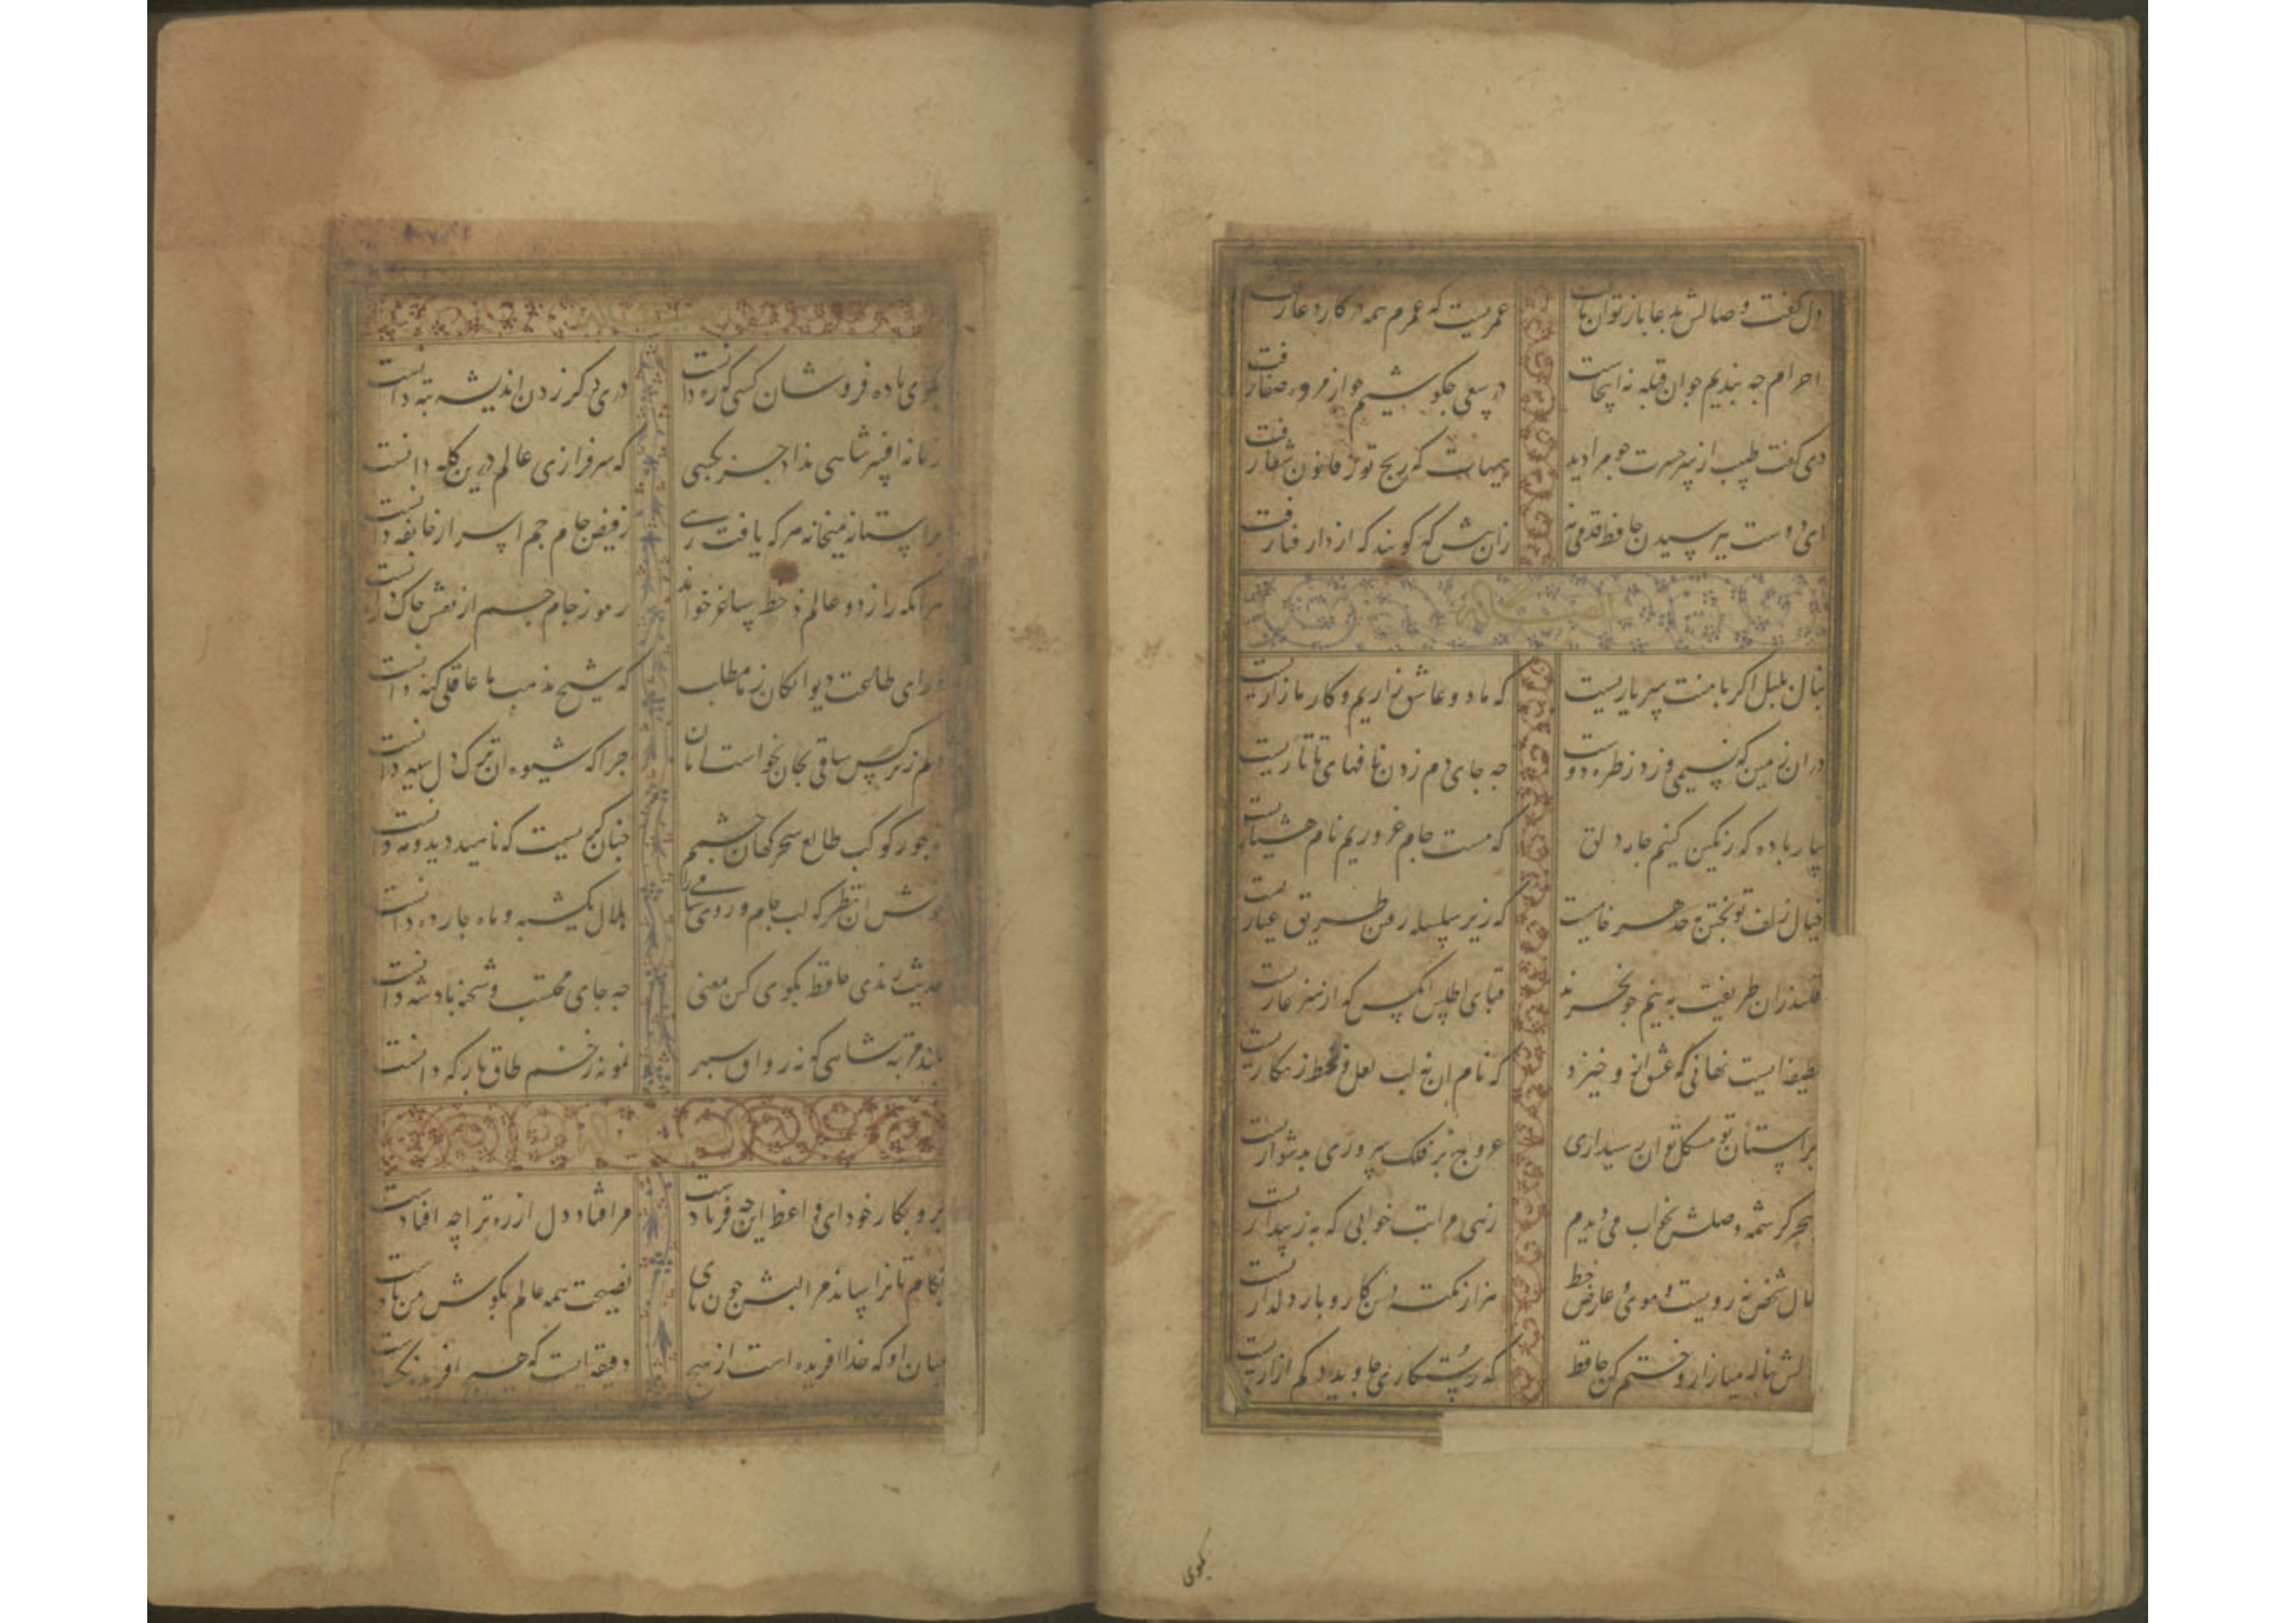 دل گفت وصالش بدعا باز توان یافت
عمریست که عمرم همه در کار دعا رفت
احرام چه بندیم جو ان قبله نه اینجاست
در سعی جکوشیم جو از مروه صفا رفت
دی گفت طبیب از سر حسرت جو مرا دید
هیهات که رنج تو ز قانون شفا رفت
ای دوست بپرسیدن حافظ قدمی نه
زان پیش که گویند که از دار فنا رفت
بنال بلبل اگر با منت سر یاریست
که ما دو عاشق زاریم و کار ما زاریست
در ان زمین که نسیمی وزد ز طره دوست
جه جای دم زدن نافهای تاتاریست
بیار باده که رنگین کنیم جامه دلق
که مست جام غروریم نام هشیاریست
خیال زلف تو پختن نه حد هر خامیست
که زیر سلسله رفتن طریق عیاریست
قلندران طریقت به نیم جو نخرند
قبای اطلس انکس که از هنر عاریست
لطیفه ایست نهانی که عشق ازو خیزد
که نام ان نه لب لعل و خط زنگاریست
بر استان تو مشکل توان رسید اری
عروج بر فلک سروری بدشواریست
سحر کرشمه وصلش بخواب می دیدم
زهی مراتب خوابی که به ز بیداریست
جمال شخص نه رویست و موی و عارض و خط
هزار نکته درین کار و بار دلداریست
دلش بناله میازار و ختم کن حافظ
که رستکاری جاوید در کم ازاریست
بکوی
بکوی باده فروشان کسی که ره دانست
دری دکر زدن اندیشه تبه دانست
زمانه افسر شاهی نداد جز بکسی
که سرفرازی عالم درین کله دانست
بر استانه میخانه هر که یافت رهی
ز فیض جام جم اسرار خانقه دانست
هر انکه راز دو عالم ز خط ساغر خواند
رموز جام جم از نقش خاک ره دانست
ورای طاعت دیوانکان ز ما مطلب
که شیخ مذهب ما عاقلی کنه دانست
دلم ز نرکس ساقی بجان نخواست امان
جرا که شیوه ان ترک دل سیه دانست
ز جور کوکب طالع سحرکهان جشمم
جنان کریست که ناهید دید و مه دانست
خوش ان نظر که لب جام و روی ساقی را
هلال یکشبه و ماه جارده دانست
حدیث رندی حافظ بکوی کن معنی
جه جای محتسب و شحنه پادشه دانست
بلند مرتبه شاهی که نه رواق سپهر
نمونه ز خم طاق بارکه دانست
برو بکار خود ای واعظ این چه فریادست
مرا فتاد دل از ره ترا چه افتادست
بکام تا نرساند مرا لبش جون نای
نصیحت همه عالم بکوش من بادست
میان او که خدا افریده است از هیچ
دقیقه ایست که هیچ افریده نکشادست